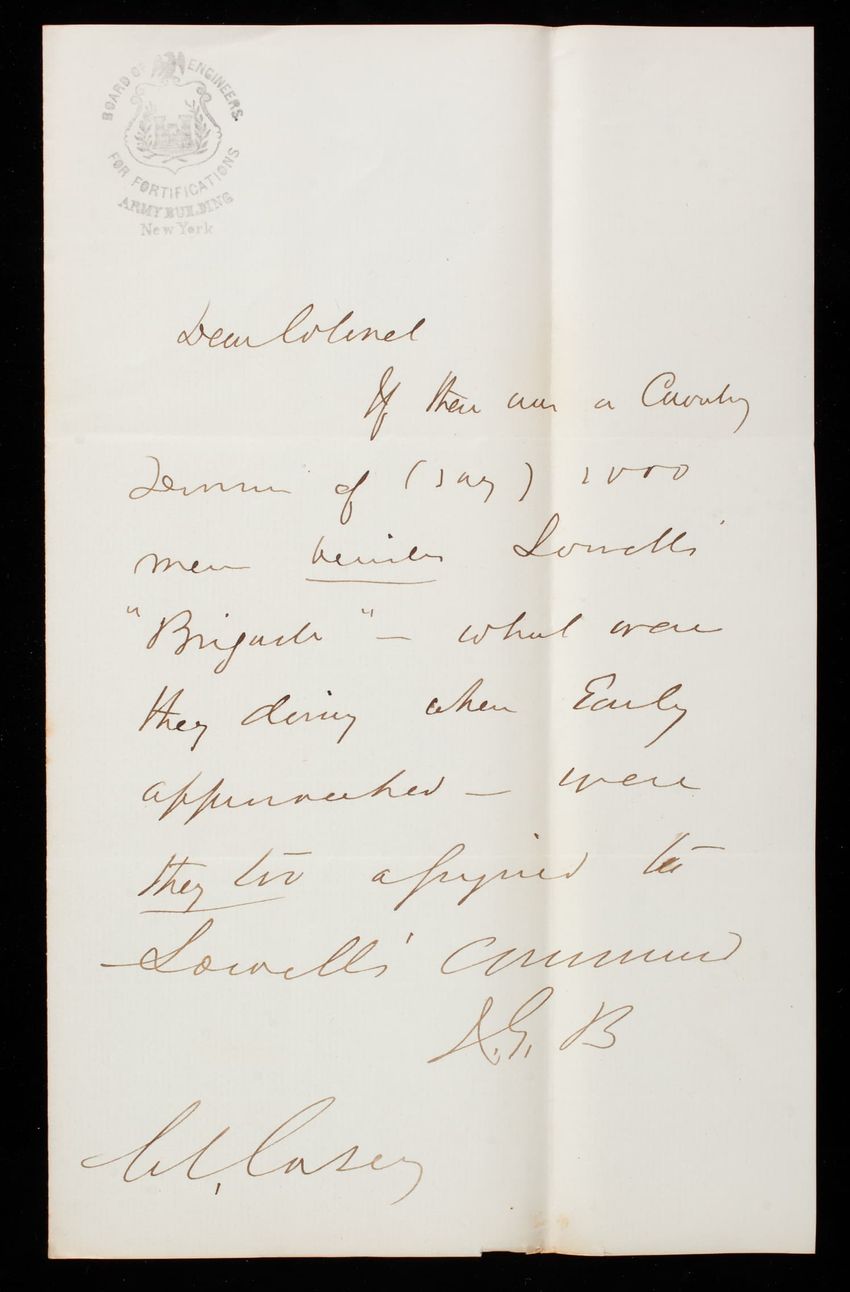 BOARD OF ENGINEERS.
FOR FORTIFICATIONS
ARMY BUILDING
New York
Dear Colonel
If there was a Cavalry
Division of (say) 1000
men besides Lowell's
"Brigade" — what were
they doing when Early
approached — were
they too assigned to
Lowell's Command
J.G. B
Col. Casey